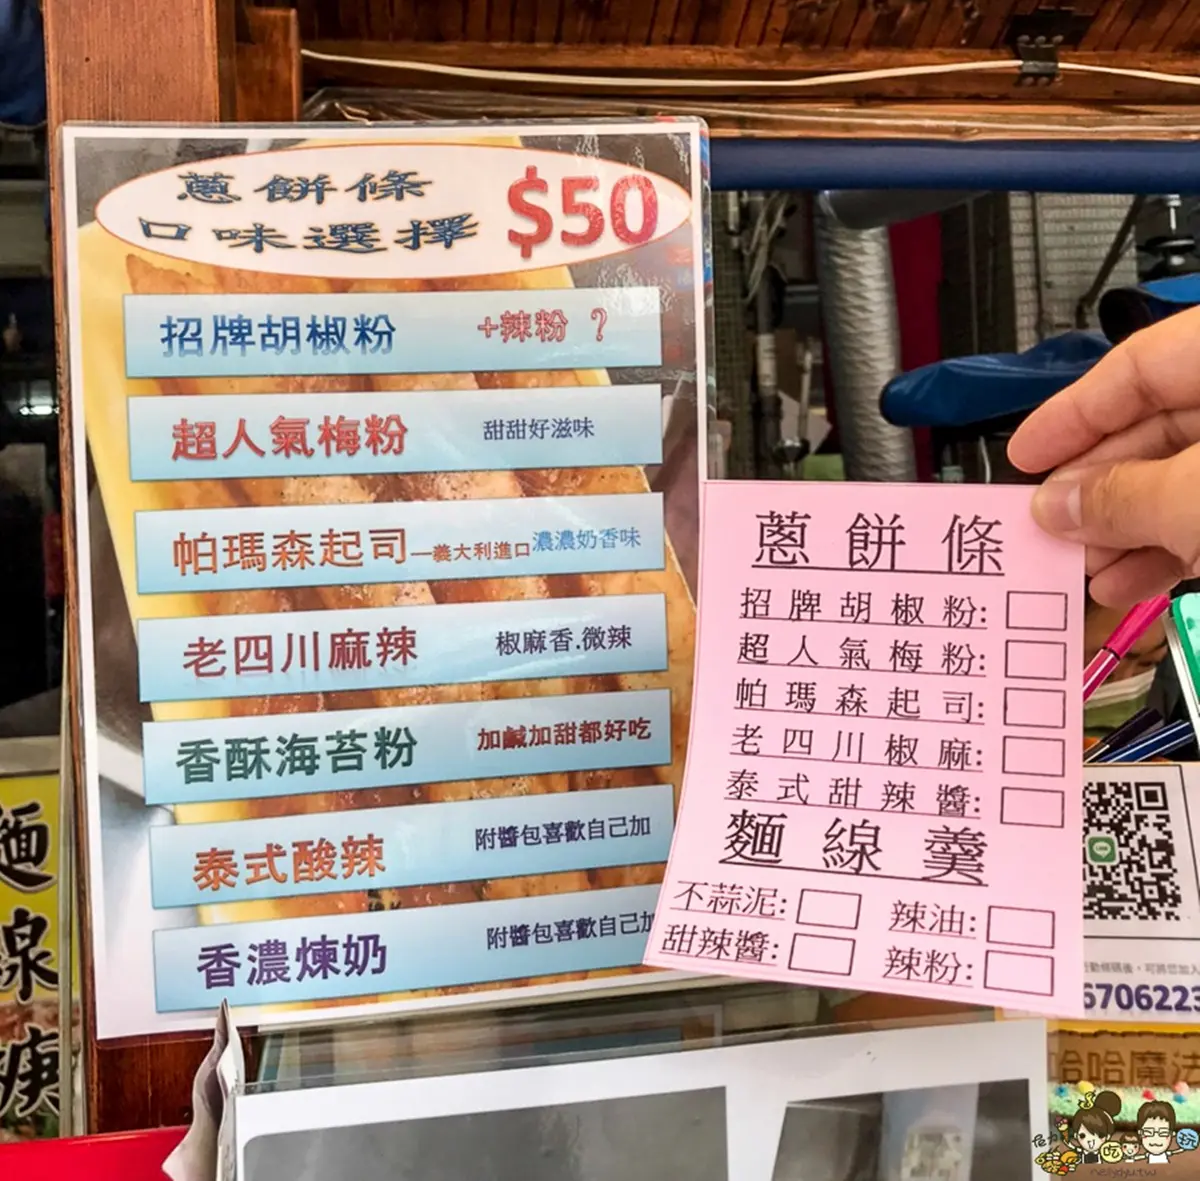 蔥餅條
口味選擇
$50
招牌胡椒粉 +辣粉？
超人氣梅粉 甜甜好滋味
帕瑪森起司—義大利進口 濃濃奶香味
老四川麻辣 椒麻香.微辣
香酥海苔粉 加鹹加甜都好吃
泰式酸辣 附醬包喜歡自己加
香濃煉奶 附醬包喜歡自己加
蔥餅條
招牌胡椒粉:
超人氣梅粉:
帕瑪森起司:
老四川椒麻:
泰式甜辣醬:
麵線羹
不蒜泥: 辣油:
甜辣醬: 辣粉:
行動條碼後，可將您加入
6706223
哈哈魔法
麵線
吃
玩
nellydyu.tw